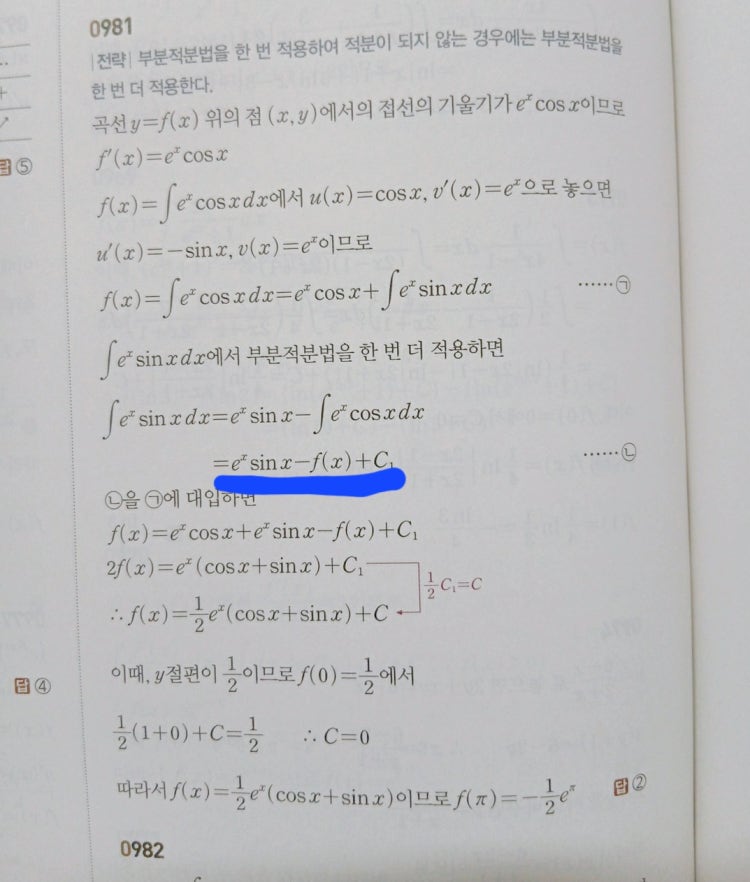 0981
|전략| 부분적분법을 한 번 적용하여 적분이 되지 않는 경우에는 부분적분법을
한 번 더 적용한다.
곡선 y=f(x) 위의 점 (x, y)에서의 접선의 기울기가 eˣ cos x이므로
f′(x)=eˣ cos x
f(x)=∫eˣ cos x dx에서 u(x)=cos x, v′(x)=eˣ으로 놓으면
u′(x)=−sin x, v(x)=eˣ이므로
f(x)=∫eˣ cos x dx=eˣ cos x+∫eˣ sin x dx ⋯⋯㉠
∫eˣ sin x dx에서 부분적분법을 한 번 더 적용하면
∫eˣ sin x dx=eˣ sin x−∫eˣ cos x dx
=eˣ sin x−f(x)+C₁ ⋯⋯㉡
㉡을 ㉠에 대입하면
f(x)=eˣ cos x+eˣ sin x−f(x)+C₁
2f(x)=eˣ(cos x+sin x)+C₁
½C₁=C
∴ f(x)=½eˣ(cos x+sin x)+C
이때, y절편이 ½이므로 f(0)=½에서
½(1+0)+C=½ ∴ C=0
따라서 f(x)=½eˣ(cos x+sin x)이므로 f(π)=−½e^π 답 ②
0982
답 ⑤
답 ④